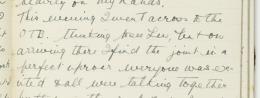 on my hands,
This evening I went across to the
O.T.D. thinking see Lee, but on
arriving there I find the joint in a
perfect uproar everyone was ex-
cited & all were talking together